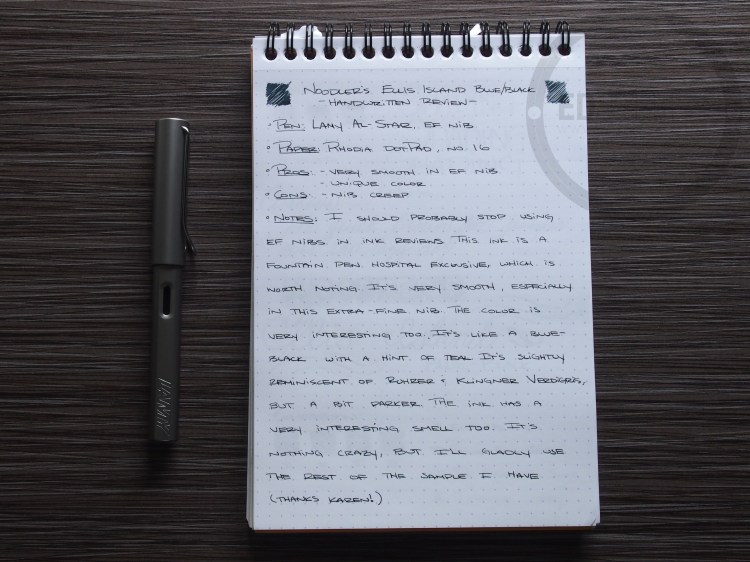 NOODLER'S ELLIS ISLAND BLUE/BLACK
- HANDWRITTEN REVIEW -
• PEN: LAMY AL-STAR, EF NIB
• PAPER: RHODIA DOTPAD, NO. 16
• PROS: - VERY SMOOTH IN EF NIB
- UNIQUE COLOR
• CONS: - NIB CREEP
• NOTES: I SHOULD PROBABLY STOP USING
EF NIBS IN INK REVIEWS. THIS INK IS A
FOUNTAIN PEN HOSPITAL EXCLUSIVE, WHICH IS
WORTH NOTING. IT'S VERY SMOOTH, ESPECIALLY
IN THIS EXTRA-FINE NIB. THE COLOR IS
VERY INTERESTING TOO. IT'S LIKE A BLUE-
BLACK WITH A HINT OF TEAL. IT'S SLIGHTLY
REMINISCENT OF ROHRER & KLINGNER VERDIGRIS,
BUT A BIT DARKER. THE INK HAS A
VERY INTERESTING SMELL TOO. IT'S
NOTHING CRAZY, BUT I'LL GLADLY USE
THE REST OF THE SAMPLE I HAVE
(THANKS KAREN!)
LAMY